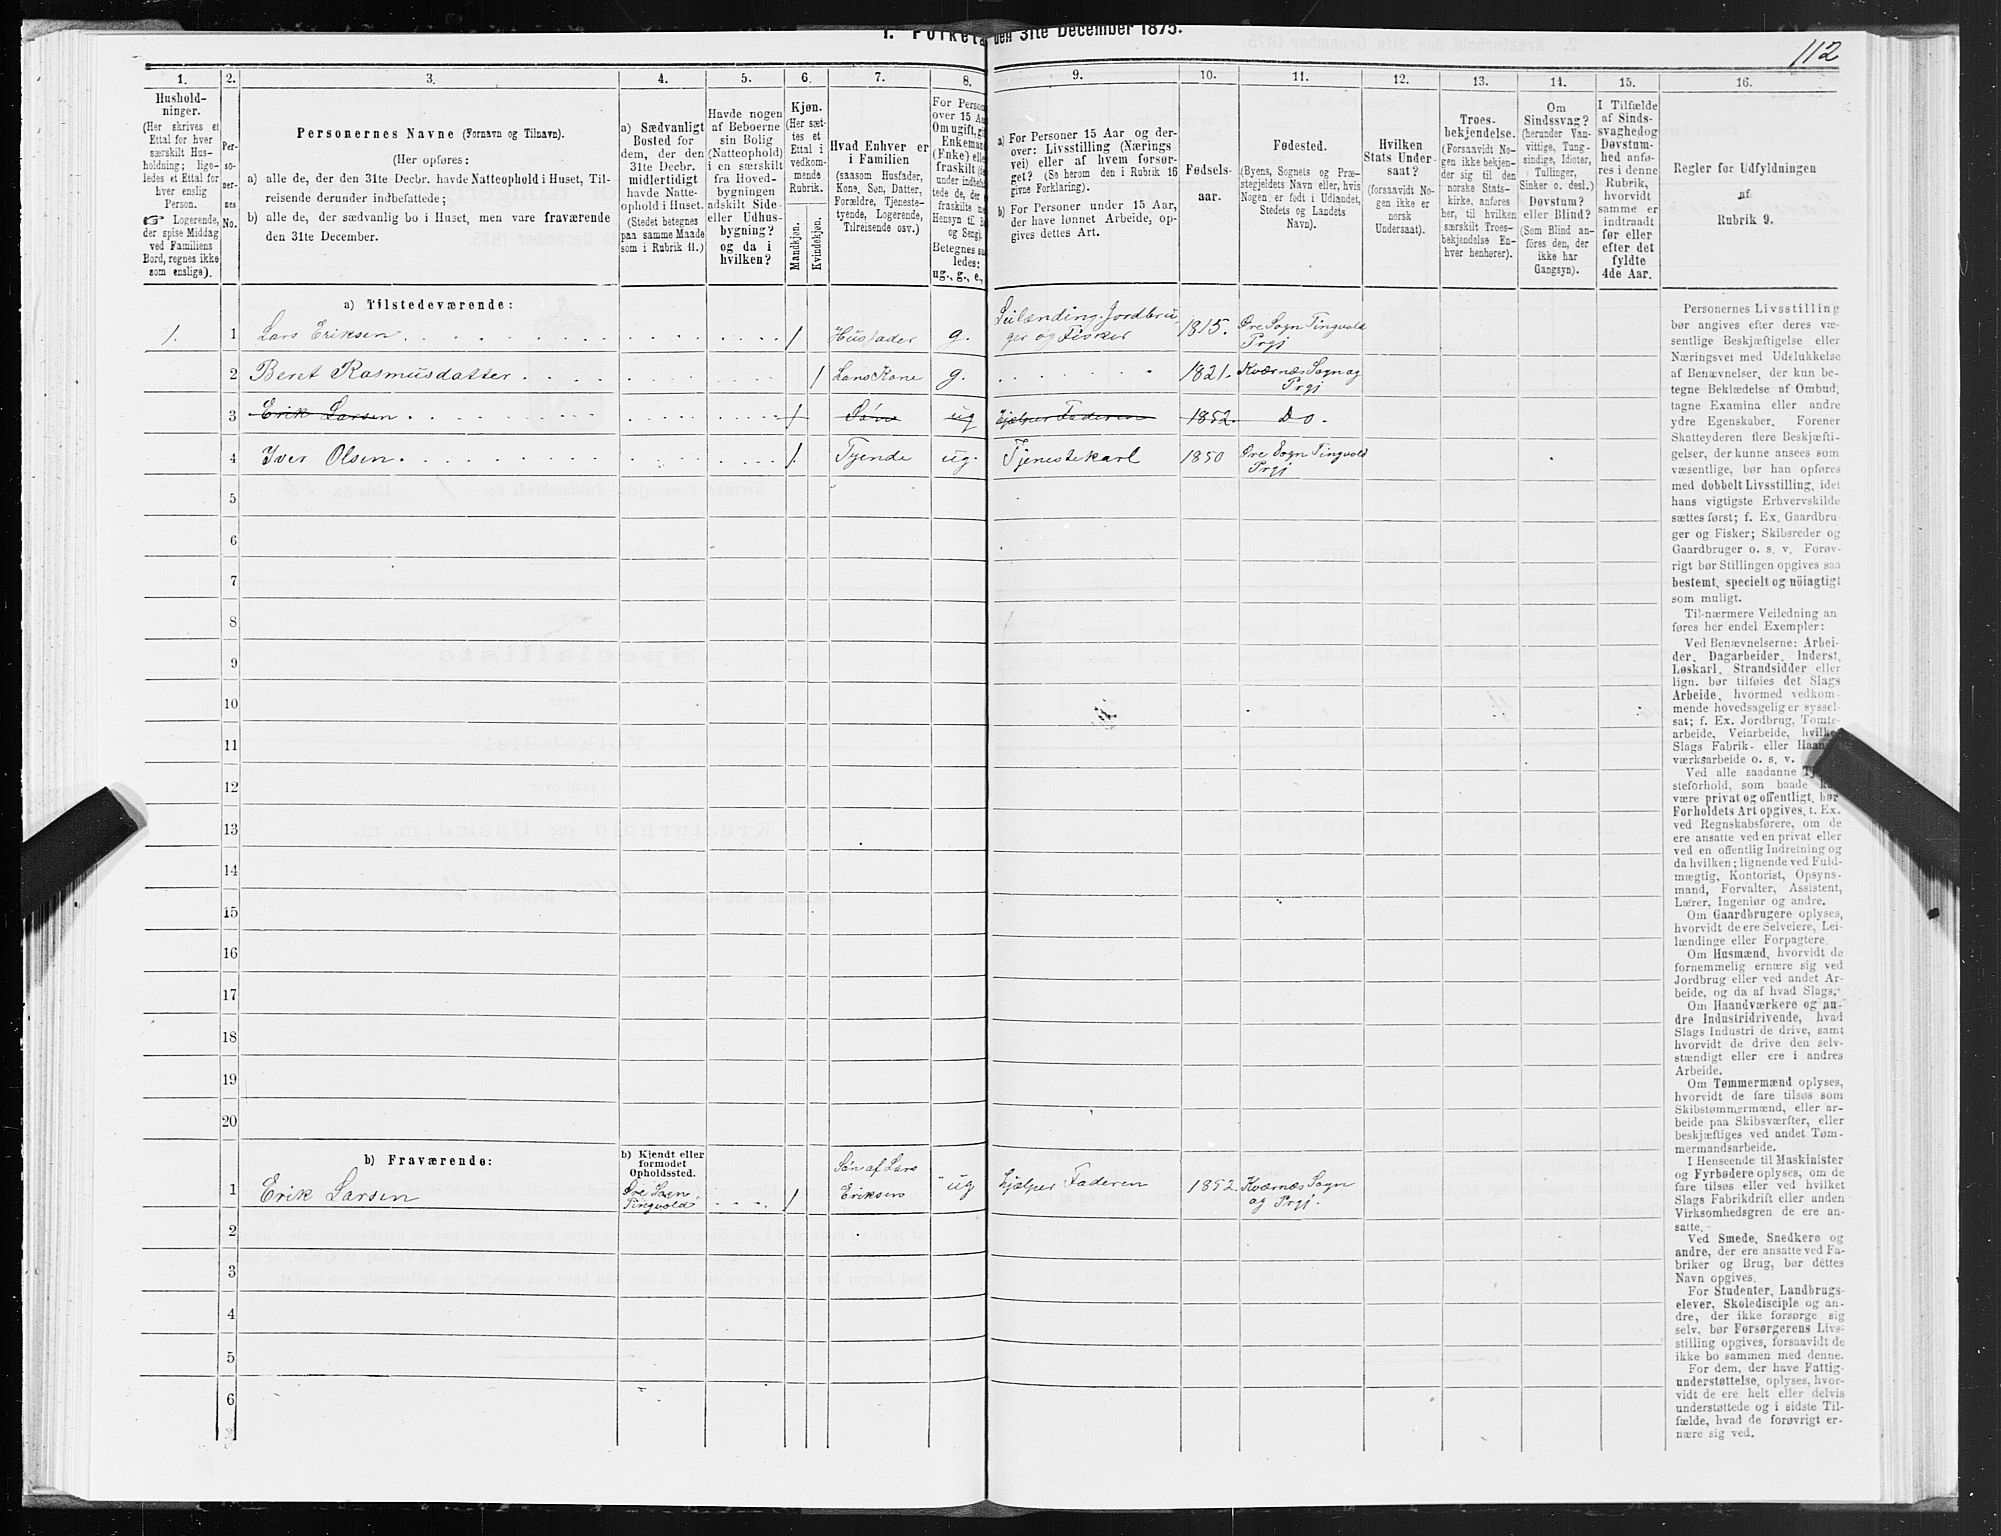 1. Folketal den 31te December 1875.
112
1. 2. 3. 4. 5. 6. 7. 8. 9. 10. 11. 12. 13. 14. 15. 16.
Hushold-
ninger.
(Her skrives et
Ettal for hver
særskilt Hus-
holdning; lige-
ledes et Ettal for
hver enslig
Person.
Logerende,
der spise Middag
ved Familiens
Bord, regnes ikke
som enslige).
Per-
so-
ner-
nes
No.
Personernes Navne (Fornavn og Tilnavn).
(Her opføres:
a) alle de, der den 31te Decbr. havde Natteophold i Huset, Til-
reisende derunder indbefattede;
b) alle de, der sædvanlig bo i Huset, men vare fraværende
den 31te December.
a) Sædvanligt
Bosted for
dem, der den
31te Decbr.
midlertidigt
havde Natte-
ophold i Huset.
(Stedet betegnes
paa samme Maade
som i Rubrik 11.)
Havde nogen
af Beboerne
sin Bolig
(Natteophold)
i en særskilt
fra Hoved-
bygningen
adskilt Side-
eller Udhus-
bygning?
og da i
hvilken?
Kjøn.
(Her sæt-
tes et
Ettal i
vedkom-
mende
Rubrik.
Mandkjøn.
Kvindekjøn.
Hvad Enhver er
i Familien
(saasom Husfader,
Kone, Søn, Datter,
Forældre, Tjeneste-
tyende, Logerende,
Tilreisende osv.)
For Person
over 15 Aa
Om ugift, gif
Enkemand
(Enke) elle
fraskilt
Betegnes saa
ledes:
ug., g., e.,
a) For Personer 15 Aar og der-
over: Livsstilling (Nærings
vei) eller af hvem forsør-
get? (Se herom den i Rubrik 16
givne Forklaring).
b) For Personer under 15 Aar,
der have lønnet Arbeide, op-
gives dettes Art.
Fødsels-
aar.
Fødested.
(Byens, Sognets og Præ-
stegjeldets Navn eller, hvis
Nogen er født i Udlandet,
Stedets og Landets
Navn).
Hvilken
Stats Under-
saat?
(forsaavidt No-
gen ikke er
norsk
Undersaat).
Troes-
bekjendelse.
(Forsaavidt No
gen ikke bekjen-
der sig til den
norske Stats-
kirke, anføres
her, til hvilken
særskilt Troes-
bekjendelse En-
hver henhører).
Om
Sindssvag?
(herunder Van-
vittige, Tung-
sindige, Idioter,
Tullinger,
Sinker o. desl.)
Døvstum?
eller Blind?
(Som Blind an-
føres den, der
ikke har
Gangsyn).
I Tilfælde
af Sinds-
svaghedog
Døvstum-
hed anfø-
res i denne
Rubrik,
hvorvidt
samme er
indtraadt
før eller
efter det
fyldte
4de Aar.
Regler for Udfyldningen
af
Rubrik 9.
a) Tilstedeværende:
1. 1 Lars Eriksen 1 Husfader g. Leilænding. Jordbru
ger og Fisker 1815. Øre Sogn Tingvold
Prgj
2 Beret Rasmusdatter 1 Lars Kone g. 1821. Kværnæs Sogn og
Prgj
3 Erik Larsen 1 Søn ug Hjælper Faderen 1852. Do.
4 Iver Olsen 1. Tyende ug. Tjenestekarl 1850 Øre Sogn Tingvold
Prgj
5
6
7
8
9
10
11
12
13
14
15
16
17
18
19
20
b) Fraværende:
b) Kjendt eller
formodet
Opholdssted.
1 Erik Larsen Øre Sogn
Tingvold 1 Søn af Lars
Eriksen ug Hjælper Faderen 1852. Kværnæs Sogn
og Prgj.
2
3
4
5
6
Personernes Livsstilling
bør angives efter deres væ-
sentlige Beskjæftigelse eller
Næringsvei med Udelukkelse
af Benævnelser, der kun be-
tegne Beklædelse af Ombud,
tagne Examina eller andre
ydre Egenskaber. Forener
Skatteyderen flere Beskjæfti-
gelser, der kunne ansees som
væsentlige, bør han opføres
med dobbelt Livsstilling, idet
hans vigtigste Erhvervskilde
sættes først; f. Ex. Gaardbru-
ger og Fisker; Skibsreder og
Gaardbruger o. s. v. Forøv-
rigt bør Stillingen opgives saa
bestemt, specielt og nöiagtigt
som muligt.
Til nærmere Veiledning an
føres her endel Exempler:
Ved Benævnelserne: Arbei-
der, Dagarbeider, Inderst,
Løskarl, Strandsidder eller
lign. bør tilføies det Slags
Arbeide, hvormed vedkom-
mende hovedsagelig er syssel-
sat; f. Ex. Jordbrug, Tomte-
arbeide, Veiarbeide, hvilket
Slags Fabrik- eller Haand-
værksarbeide o. s. v.
Ved alle saadanne Tje-
steforhold, som baade ka
være privat og offentligt, bør
Forholdets Art opgives, t. Ex.
ved Regnskabsførere, om de
ere ansatte ved en privat eller
ved en offentlig Indretning og
da hvilken; lignende ved Fuld-
mægtig, Kontorist, Opsyns-
mand, Forvalter, Assistent,
Lærer, Ingeniør og andre.
Om Gaardbrugere oplyses,
hvorvidt de ere Selveiere, Lei-
lændinge eller Forpagtere.
Om Husmænd, hvorvidt de
fornemmelig ernære sig ved
Jordbrug eller ved andet Ar-
beide, og da af hvad Slags.
Om Haandværkere og an-
dre Industridrivende, hvad
Slags Industri de drive, samt
hvorvidt de drive den selv-
stændigt eller ere i andres
Arbeide.
Om Tømmermænd oplyses,
hvorvidt de fare tilsøs som
Skibstømmermænd, eller ar-
beide paa Skibsværfter, eller
beskjæftiges ved andet Tøm-
mermandsarbeide.
I Henseende til Maskinister
og Fyrbødere oplyses, om de
fare tilsøs eller ved hvilket
Slags Fabrikdrift eller anden
Virksomhedsgren de ere an-
satte.
Ved Smede, Snedkere og
andre, der ere ansatte ved Fa-
briker og Brug, bør dettes
Navn opgives.
For Studenter, Landbrugs-
elever, Skoledisciple og an-
dre, der ikke forsørge sig
selv, bør Forsørgerens Livs-
stilling opgives, forsaavidt de
ikke bo sammen med denne.
For dem, der have Fattig-
understøttelse, oplyses, hvor-
vidt de ere helt eller delvis
understøttede og i sidste Til-
fælde, hvad de forøvrigt er-
nære sig ved.